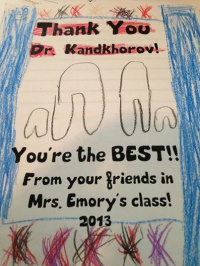 Thank You
Dr. Kandkhorov!
You're the BEST!!
From your friends in
Mrs. Emory's class!
2013